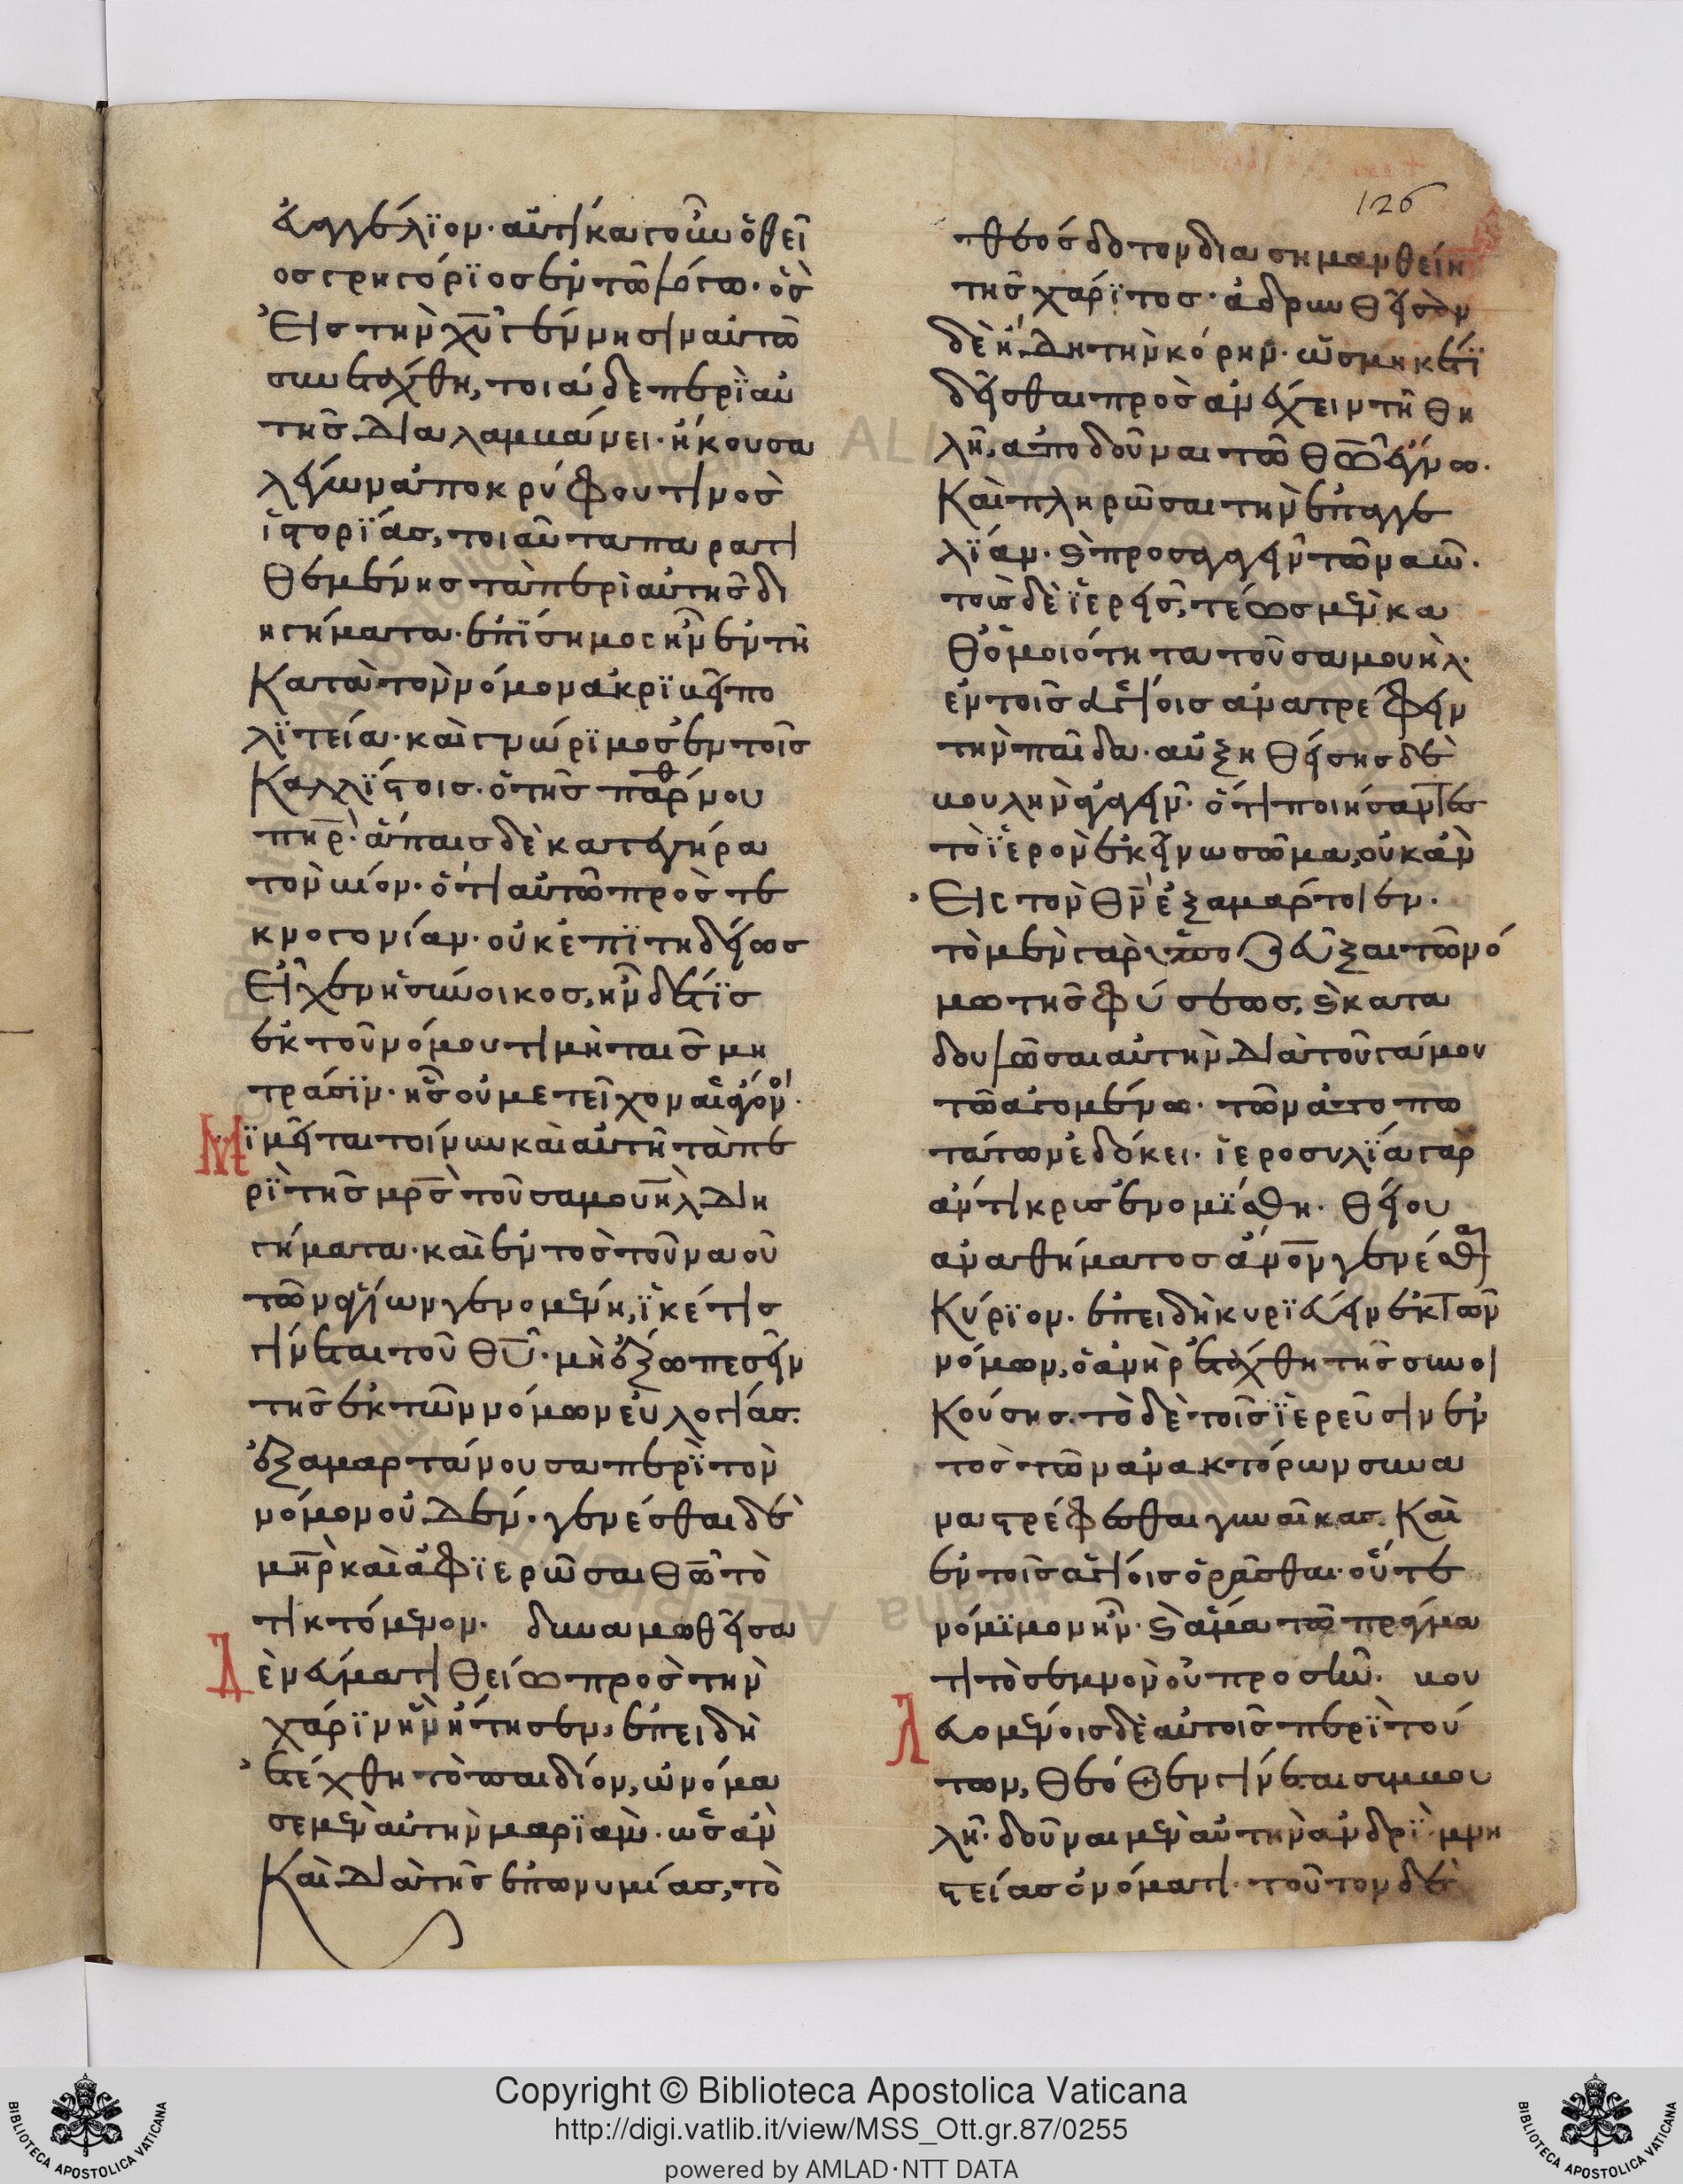 126
ἀγγέλϊον· αὐτίκα γοῦν ὁ θεῖ
ος γρηγόρϊος ἐν τῶ λόγω· ὃς
εἰς τὴν χ̅υ̅ γέννησιν αὐτῶ
συνετέχθη, τοιάδε περὶ αὐ
τῆς διαλαμβάνει· ἤκουσα
λέγων ἀποκρύφου τινὸς
ἱστορίας, τοιαῦτα παρατι
θεμένης τὰ περὶ αὐτῆς δι
ηγήματα· ἐπίσημος ἦν ἐν τῆ
κατὰ τὸν νόμον ἀκριβεῖ πο
λϊτεία· καὶ γνώρϊμος ἐν τοῖς
καλλίστοις· ὁ τῆς παρ̅θ νου
π̅η̅ρ̅· ἄπαις δὲ κατεγήρα
τὸν βίον· ὅτι αὐτῶ πρὸς τε
κνογονίαν· οὐκ ἐπιτηδείως
εἶχεν ἡ σύνοικος, ἦν δέ τις
ἐκ τοῦ νόμου τιμὴ ταῖς μη
τράσϊν· ἧς οὐ μετεῖχον αἱ ἄγονοι·
Μϊμεῖται τοίνυν καὶ αὐτὴ τὰ πε
ρὶ τῆς μ̅ρ̅ς̅ τοῦ σαμουὴλ διη
γήματα· καὶ ἐντὸς τοῦ ναοῦ
τῶν ἁγίων γενομένη, ἱκέτις
γίνεται τοῦ θ̅υ̅· μὴ ἔξω πεσεῖν
τῆς ἐκ τῶν νόμων εὐλογίας.
ἐξαμαρτάνουσα περὶ τὸν
νόμον οὐδέν· γενέσθαι δὲ
μ̅η̅ρ̅ καὶ ἀφϊερῶσαι θ̅ω̅ τὸ
τικτόμενον. δυναμωθεῖσα
Δὲ νεύματι θείω πρὸς τὴν
χάρϊν ἣν ἤτησεν, ἐπειδὴ
ἐτέχθη τὸ παιδίον, ὠνόμα
σε μὲν αὐτὴν μαρϊάμ· ὡς ἂν
καὶ διὰ τῆς ἐπωνυμίας, τὸ
θεόσδοτον διασημανθείη
τῆς χάρϊτος· ἁδρυνθεῖσαν
δὲ ἤδη τὴν κόρην· ὡς μηκέτϊ
δεῖσθαι προσανέχειν τῆ θη
λῆ, ἀποδοῦναι τῶ θ̅ω̅
καὶ πληρῶσαι τὴν ἐπαγγε
λίαν· καὶ προσαγαγεῖν τῶ ναῶ.
τοὺς δὲ ἱερεῖς, τέως μὲν κα
θ' ὁμοιότητα τοῦ σαμουὴλ·
ἐν τοῖς ἁγίοις ἀνατρέφειν
τὴν παῖδα· αὐξηθείσης δὲ
βουλὴν ἄγειν· ὅ τι ποιήσαντες
τὸ ἱερὸν ἐκεῖνο σῶμα, οὐκ ἂν
εἰς τὸν θ̅ν̅ ἐξαμάρτοιεν.
τὸ μὲν γὰρ ὑποζεῦξαι τῶ νό
μω τῆς φύσεως, καὶ κατα
δουλῶσαι αὐτὴν διὰ τοῦ γάμου
τῶ ἀγομένω· τῶν ἀτοπω
τάτων ἐδόκει· ἱεροσυλία γὰρ
ἄντικρυς ἐνομίσθη· θείου
ἀναθήματος ἄν̅ο̅ν̅ γενέσθαι
κύρϊον. ἐπειδὴ κυριεύειν ἐκ τῶν
νόμων, ὁ ἀνὴρ ἐτάχθη τῆς συνοι
κούσης. τὸ δὲ τοῖς ἱερεῦσιν ἐν
τὸς τῶν ἀνακτόρων συνα
ναστρέφεσθαι γυναῖκας. καὶ
ἐν τοῖς ἁγίοις ὁρᾶσθαι· οὔτε
νόμϊμον ἦν· καὶ ἅμα τῶ πράγμα
τι τὸ σεμνὸν οὐ προσῆν. βου
Λευομένοις δὲ αὐτοῖς περὶ τού
των, θεόθεν γίνεται συμβου
λή· δοῦναι μὲν αὐτὴν ἀνδρὶ μνη
στείας ὀνόματι· τοῦτον δὲ
Copyright © Biblioteca Apostolica Vaticana
http://digi.vatlib.it/view/MSS_Ott.gr.87/0255
powered by AMLAD·NTT DATA
BIBLIOTECA APOSTOLICA VATICANA
BIBLIOTECA APOSTOLICA VATICANA